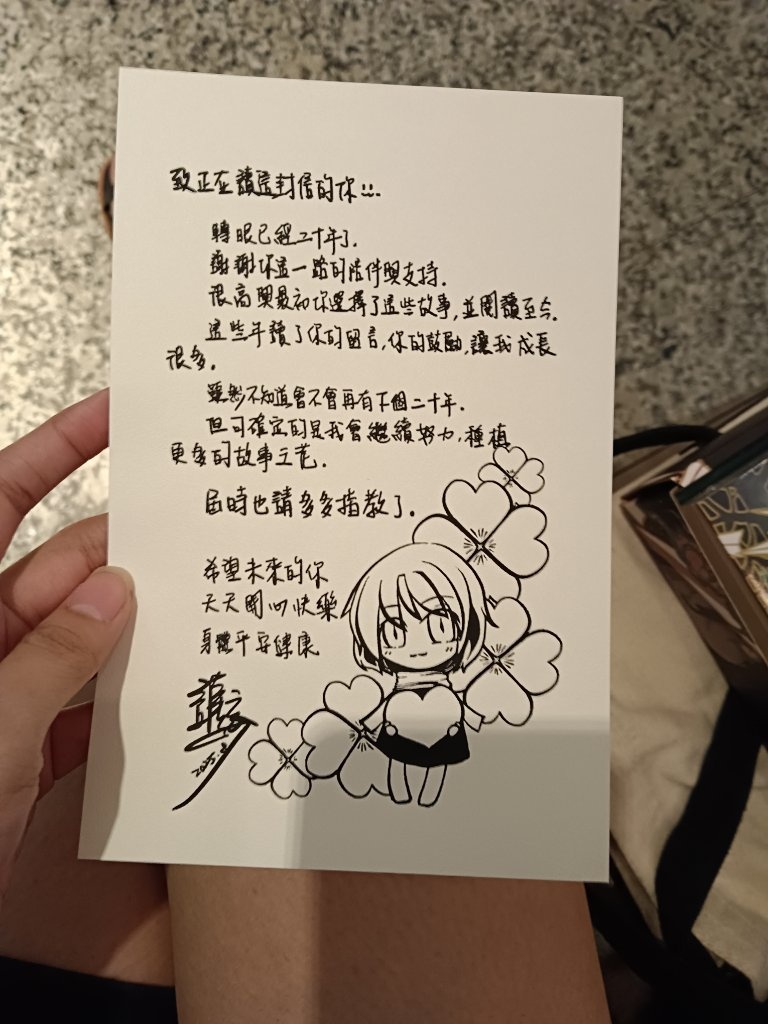 致正在讀這封信的你!!!
轉眼已經二十年了.
謝謝你這一路的陪伴與支持.
很高興最初你選擇了這些故事,並閱讀至今.
這些年讀了你的留言,你的鼓勵,讓我成長
很多.
雖然不知道會不會再有下個二十年.
但可確定的是我會繼續努力,種植
更多的故事之花.
屆時也請多多指教了.
希望未來的你
天天開心快樂
身體平安健康
2025.